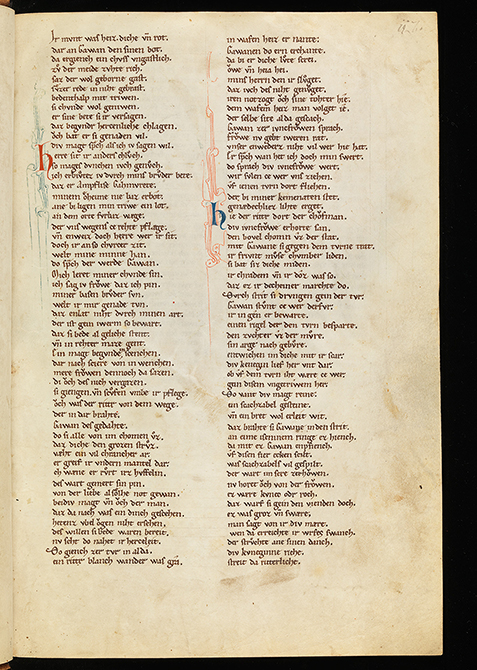 Ir mvnt was heiz diche vñ rot.
dar an Gawan den sinen bot.
da ergiench ein chvss vngastlich.
zv der meide zvhte rich.
saz der wol geborne gast.
svzer rede in niht gebrast.
bedenthalp mit triwen.
si chvnde wol geniwen.
er sine bete si ir versagen.
daz begvnder herzenliche chlagen.
och bat er si genaden vil.
div magt sprach als ich iv sagen wil.
herre sit ir anders chlvch.
so mages dvnchen ivch genvch.
ich erbivtez iv dvrch mins brvder bete.
daz ez Ampflise Gahmvrete.
minem oheime nie baz erbot.
ane bi ligen min triwe ein lot.
an dem orte fvrbaz wage.
der vns wegens ze rehte pflage.
vñ enweiz doch herre wer ir sit.
doch ir an so chvrzer zit.
welt mine minne han.
do sprach der werde Gawan.
Mich leret miner chvnde sin.
ich sag iv frowe daz ich pin.
miner basen brvder svn.
welt ir mir genade tvn.
daz enlat niht dvrch minen art.
der ist gein iwerm so bewart.
daz si bede al geliche stent.
vñ in rehter maze gent.
ein magt begvnde in schenchen.
dar nach schiere von in wenchen.
mere frowen dennoch da sazen.
di och des nich vergezen.
si giengen vñ schvfen vmbe ir pflege.
och was der ritter von dem wege.
der in dar brahte.
Gawan des gedahte.
do si alle von im chomen vz.
daz diche den grozen strvz.
væht ein vil chrancher ar.
er greif ir vndern mantel dar.
ich wæne er rvrt irz hvffelin.
des wart gemert sin pin.
von der liebe al solhe not gewan.
beidiv magt vñ och der man.
daz da nach was ein dinch geschehen.
hetenz vbel ogen niht ersehen.
des willen si bede waren bereit.
nv seht do nahet ir herzeleit.
Do giench zer tvr in al da.
ein ritter blanch wander was gra.
in wafen heiz er nante.
Gawanen do ern erchante.
da bi er diche lvte screi.
owe vñ heia hei.
mins herren den ir slvget.
daz ivch des niht genvget.
irn notzogt och sine tohter hie.
dem wafem heiz man volget ie.
der selbe site alda geschach.
Gawan zer ivncfrowen sprach.
frowe nv gebt iwern rat.
vnser enweders niht vil wer hie hat.
Er sprach wan het ich doch min swert.
do sprach div ivncfrowe wert.
wir svlen ze wer vns ziehen.
vf ienen tvrn dort fliehen.
der bi miner kemenaten stet.
genædechlich lihte ez get.
hie der ritter dort der chofman.
div ivncfrowe erhorte san.
den bovel chomn vz der stat.
mit Gawane si gegen dem tvrne trat.
ir frivnt mvse chvmber liden.
si bat siz diche miden.
ir chradem vñ ir doz was so.
daz ez ir decheiner marchte do.
Dvrch strit si drvngen gein der tvr.
Gawan stvnt ze wer derfvr.
ir in gen er bewarte.
einen rigel der den tvrn besparte.
den zvchter vz der mvre.
sin arge nach gebvre.
entwichen im diche mit ir scar.
div kunegin lief her vnt dar.
ob vf dem tvrn iht wære ze wer.
gein disem vngetriwem her.
Do vant div magt reine.
ein schachzabel gesteine.
vñ ein bret wol erleit wit.
daz brahte si Gawane in den strit.
an eime iseninem ringe ez hiench.
da mit ez Gawan enpfiench.
vf disen fier ecken schilt.
was schachzabels vil gespilt.
der wart im sere zerhowen.
nv horet och von der frowen.
ez wære kvnec oder roch.
daz warf si gein den vienden doch.
ez was groz vñ swære.
man sagt von ir div mære.
wen da erreichte ir wrfes swanch.
der strvchte ane sinen danch.
div kvneginne riche.
streit da ritterliche.